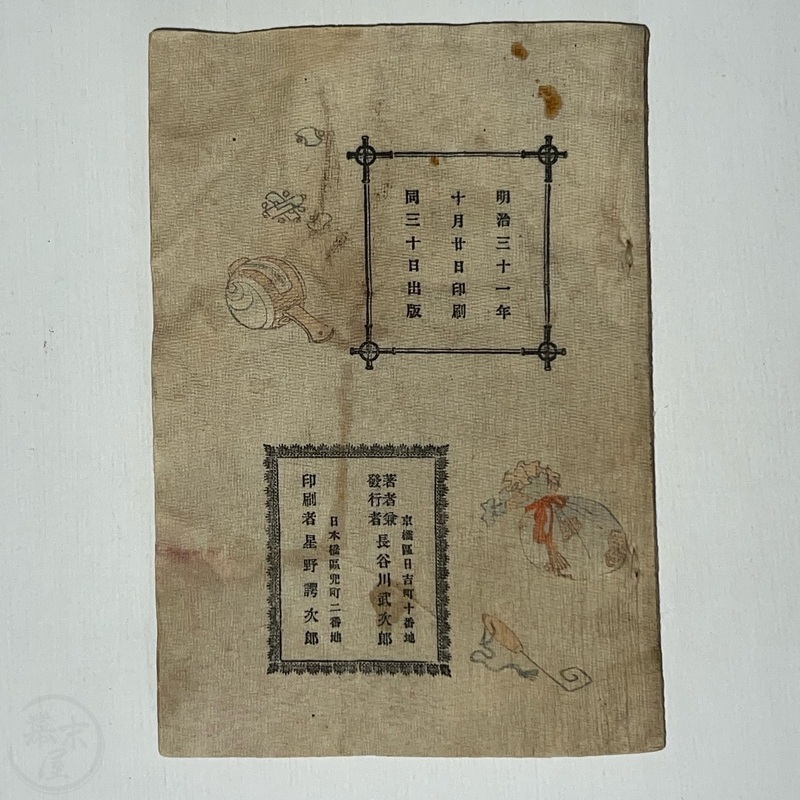 明治三十一年
十月廿日印刷
同三十日出版
京橋區日吉町十番地
著者兼發行者 長谷川武次郎
日本橋區兜町二番地
印刷者 星野 次郎
幕末屋